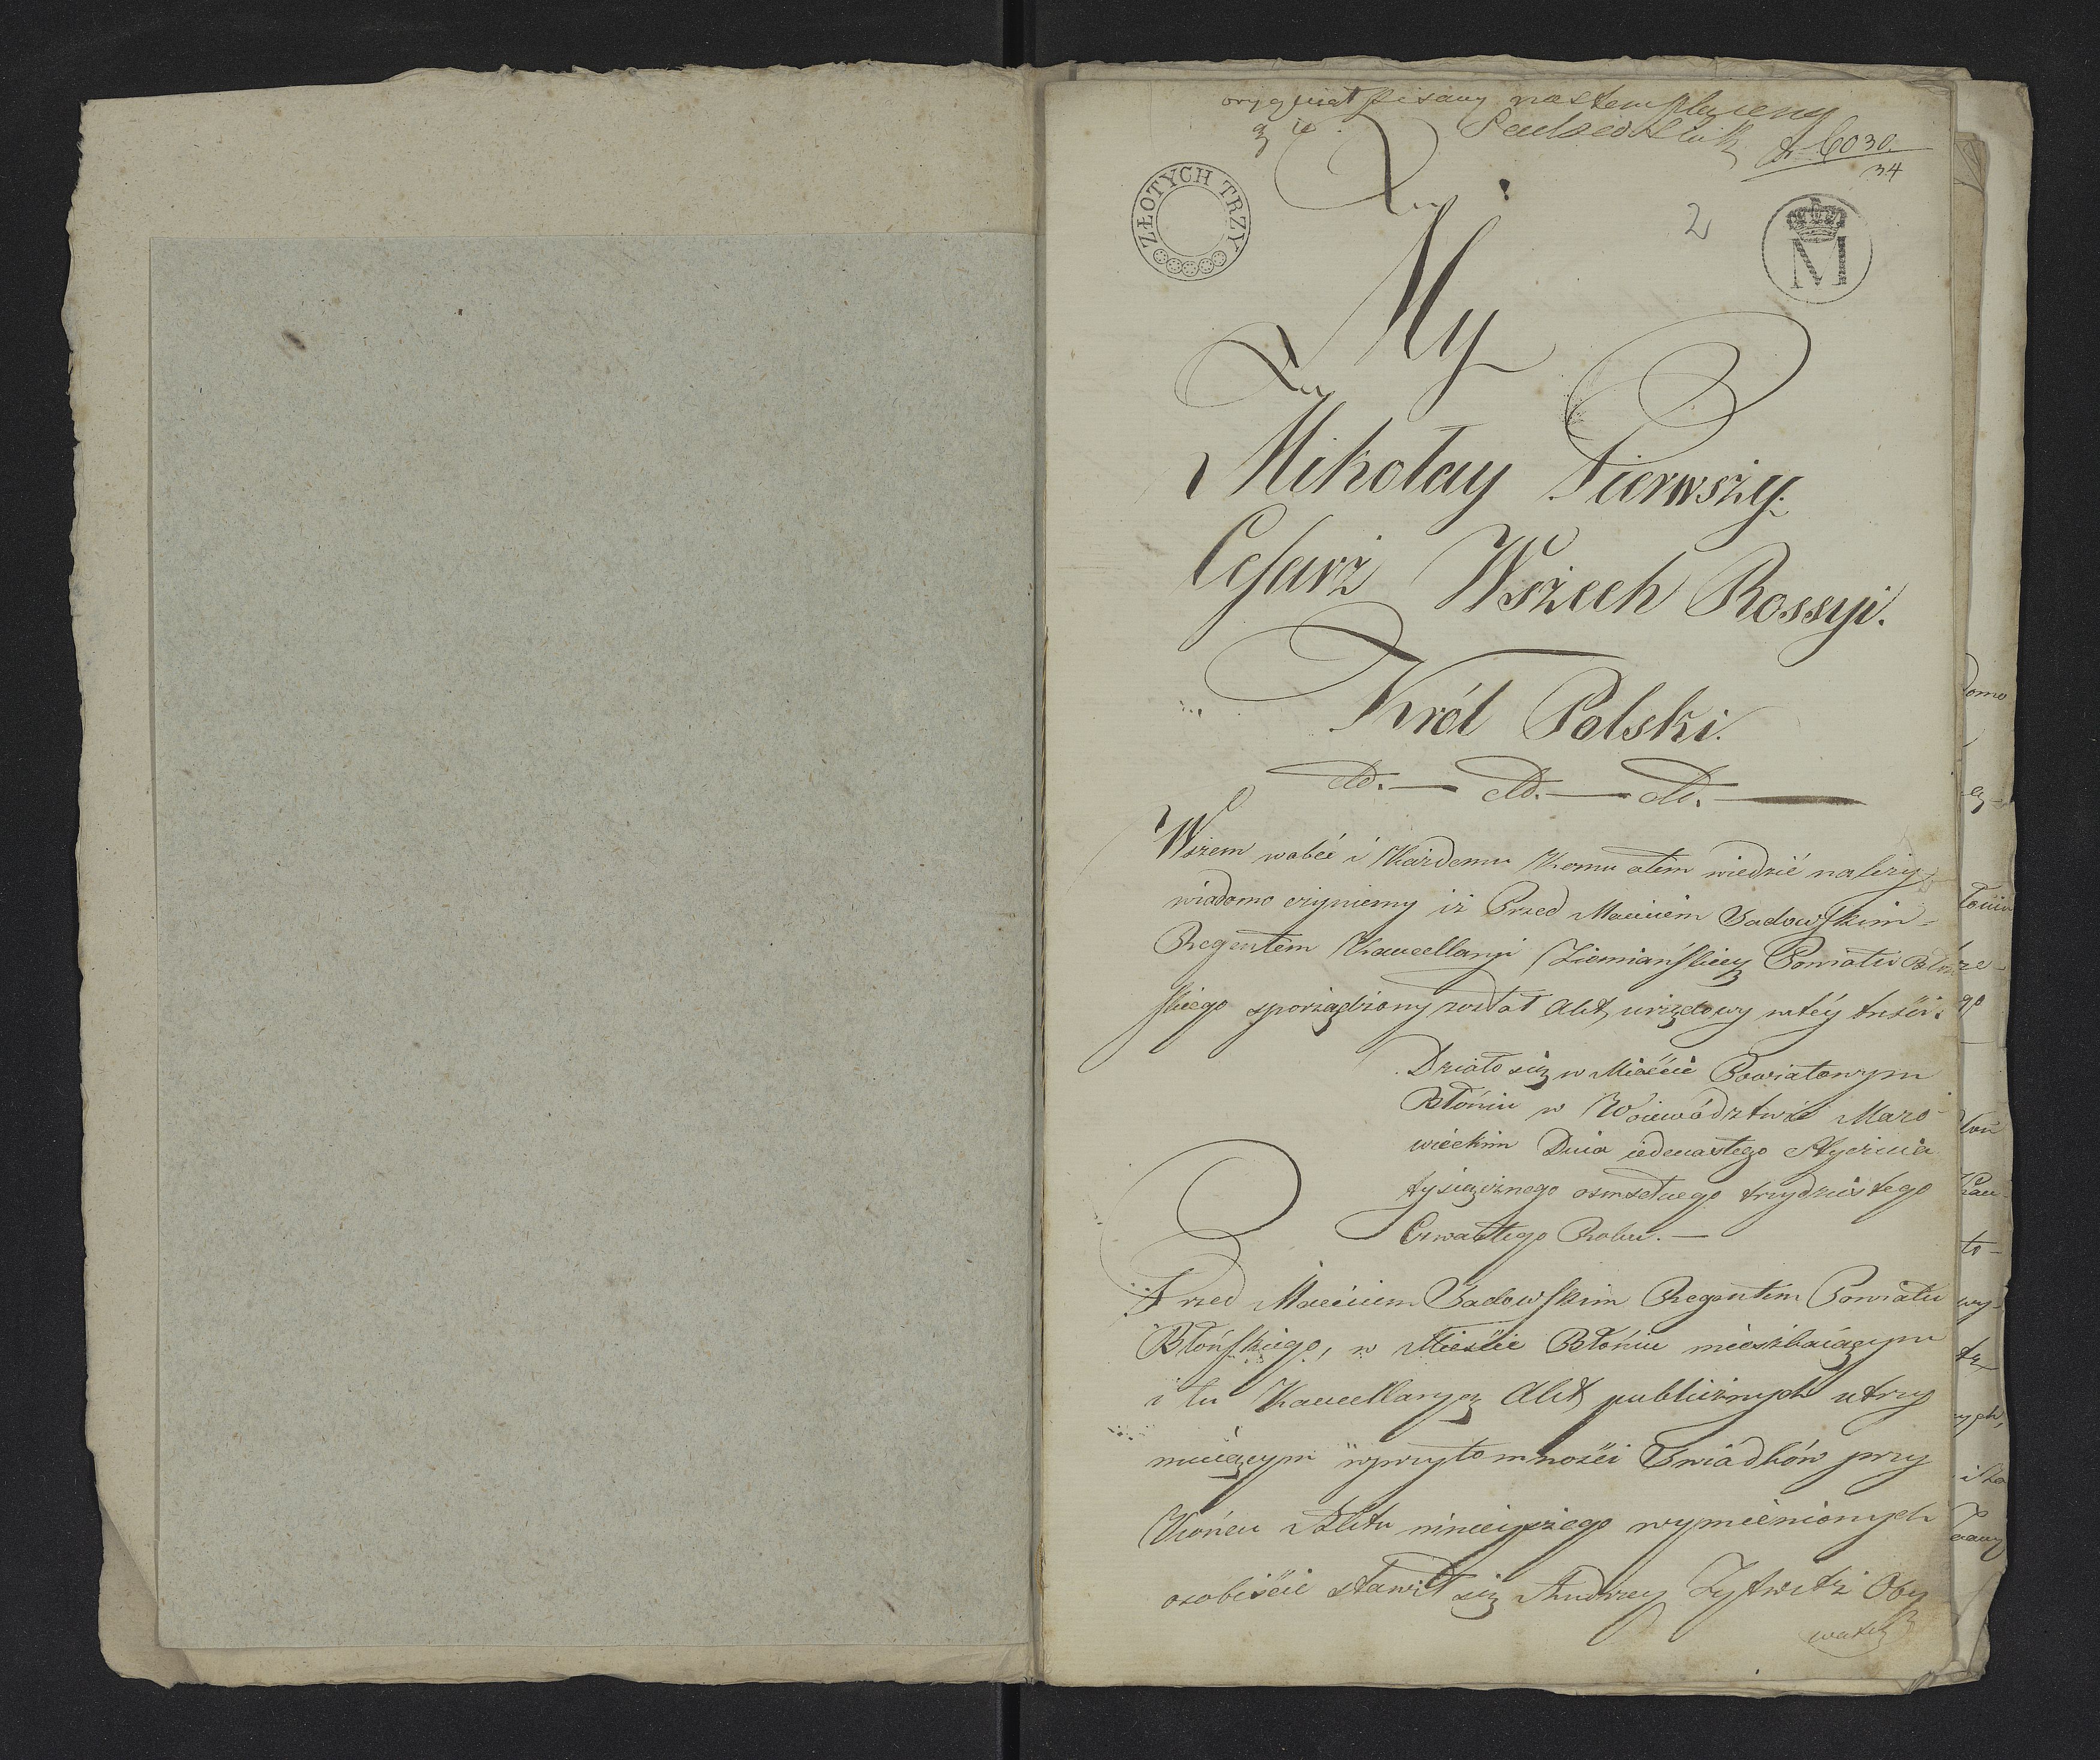 oryginał pisany
№ 6030
34
ZŁOTYCH TRZY
2
M
My
Mikołay Pierwszy.
Cesarz Wszech Rossyi.
Król Polski.
etd. — etd. — etd. —
Wszem wobeć i Każdemu Komu otém wiedzić należy
wiadomo czyniemy iż Przed Macieiem Sadowskim
Regentem Kancellaryi Ziemiańskiey Powiatu Błoń
skiego sporządzony został Akt urzędowy w téy treści.
Działo się w Mieście Powiatowym
Błoniu w Woiewództwie Mazo
wieckim Dnia iedenastego Stycznia
tysiącznego osmsetnego trzydziestego
Czwartego Roku. —
Przed Macieiem Sadowskim Regentem Powiatu
Błońskiego, w Mieście Błoniu mieszkaiącym
i tu Kancellaryą Akt publicznych utrzy
muiącym w przytomności Swiadków przy
Końcu Aktu ninieyszego wymienionych
osobiście stawił się Andrzey Oby
watel